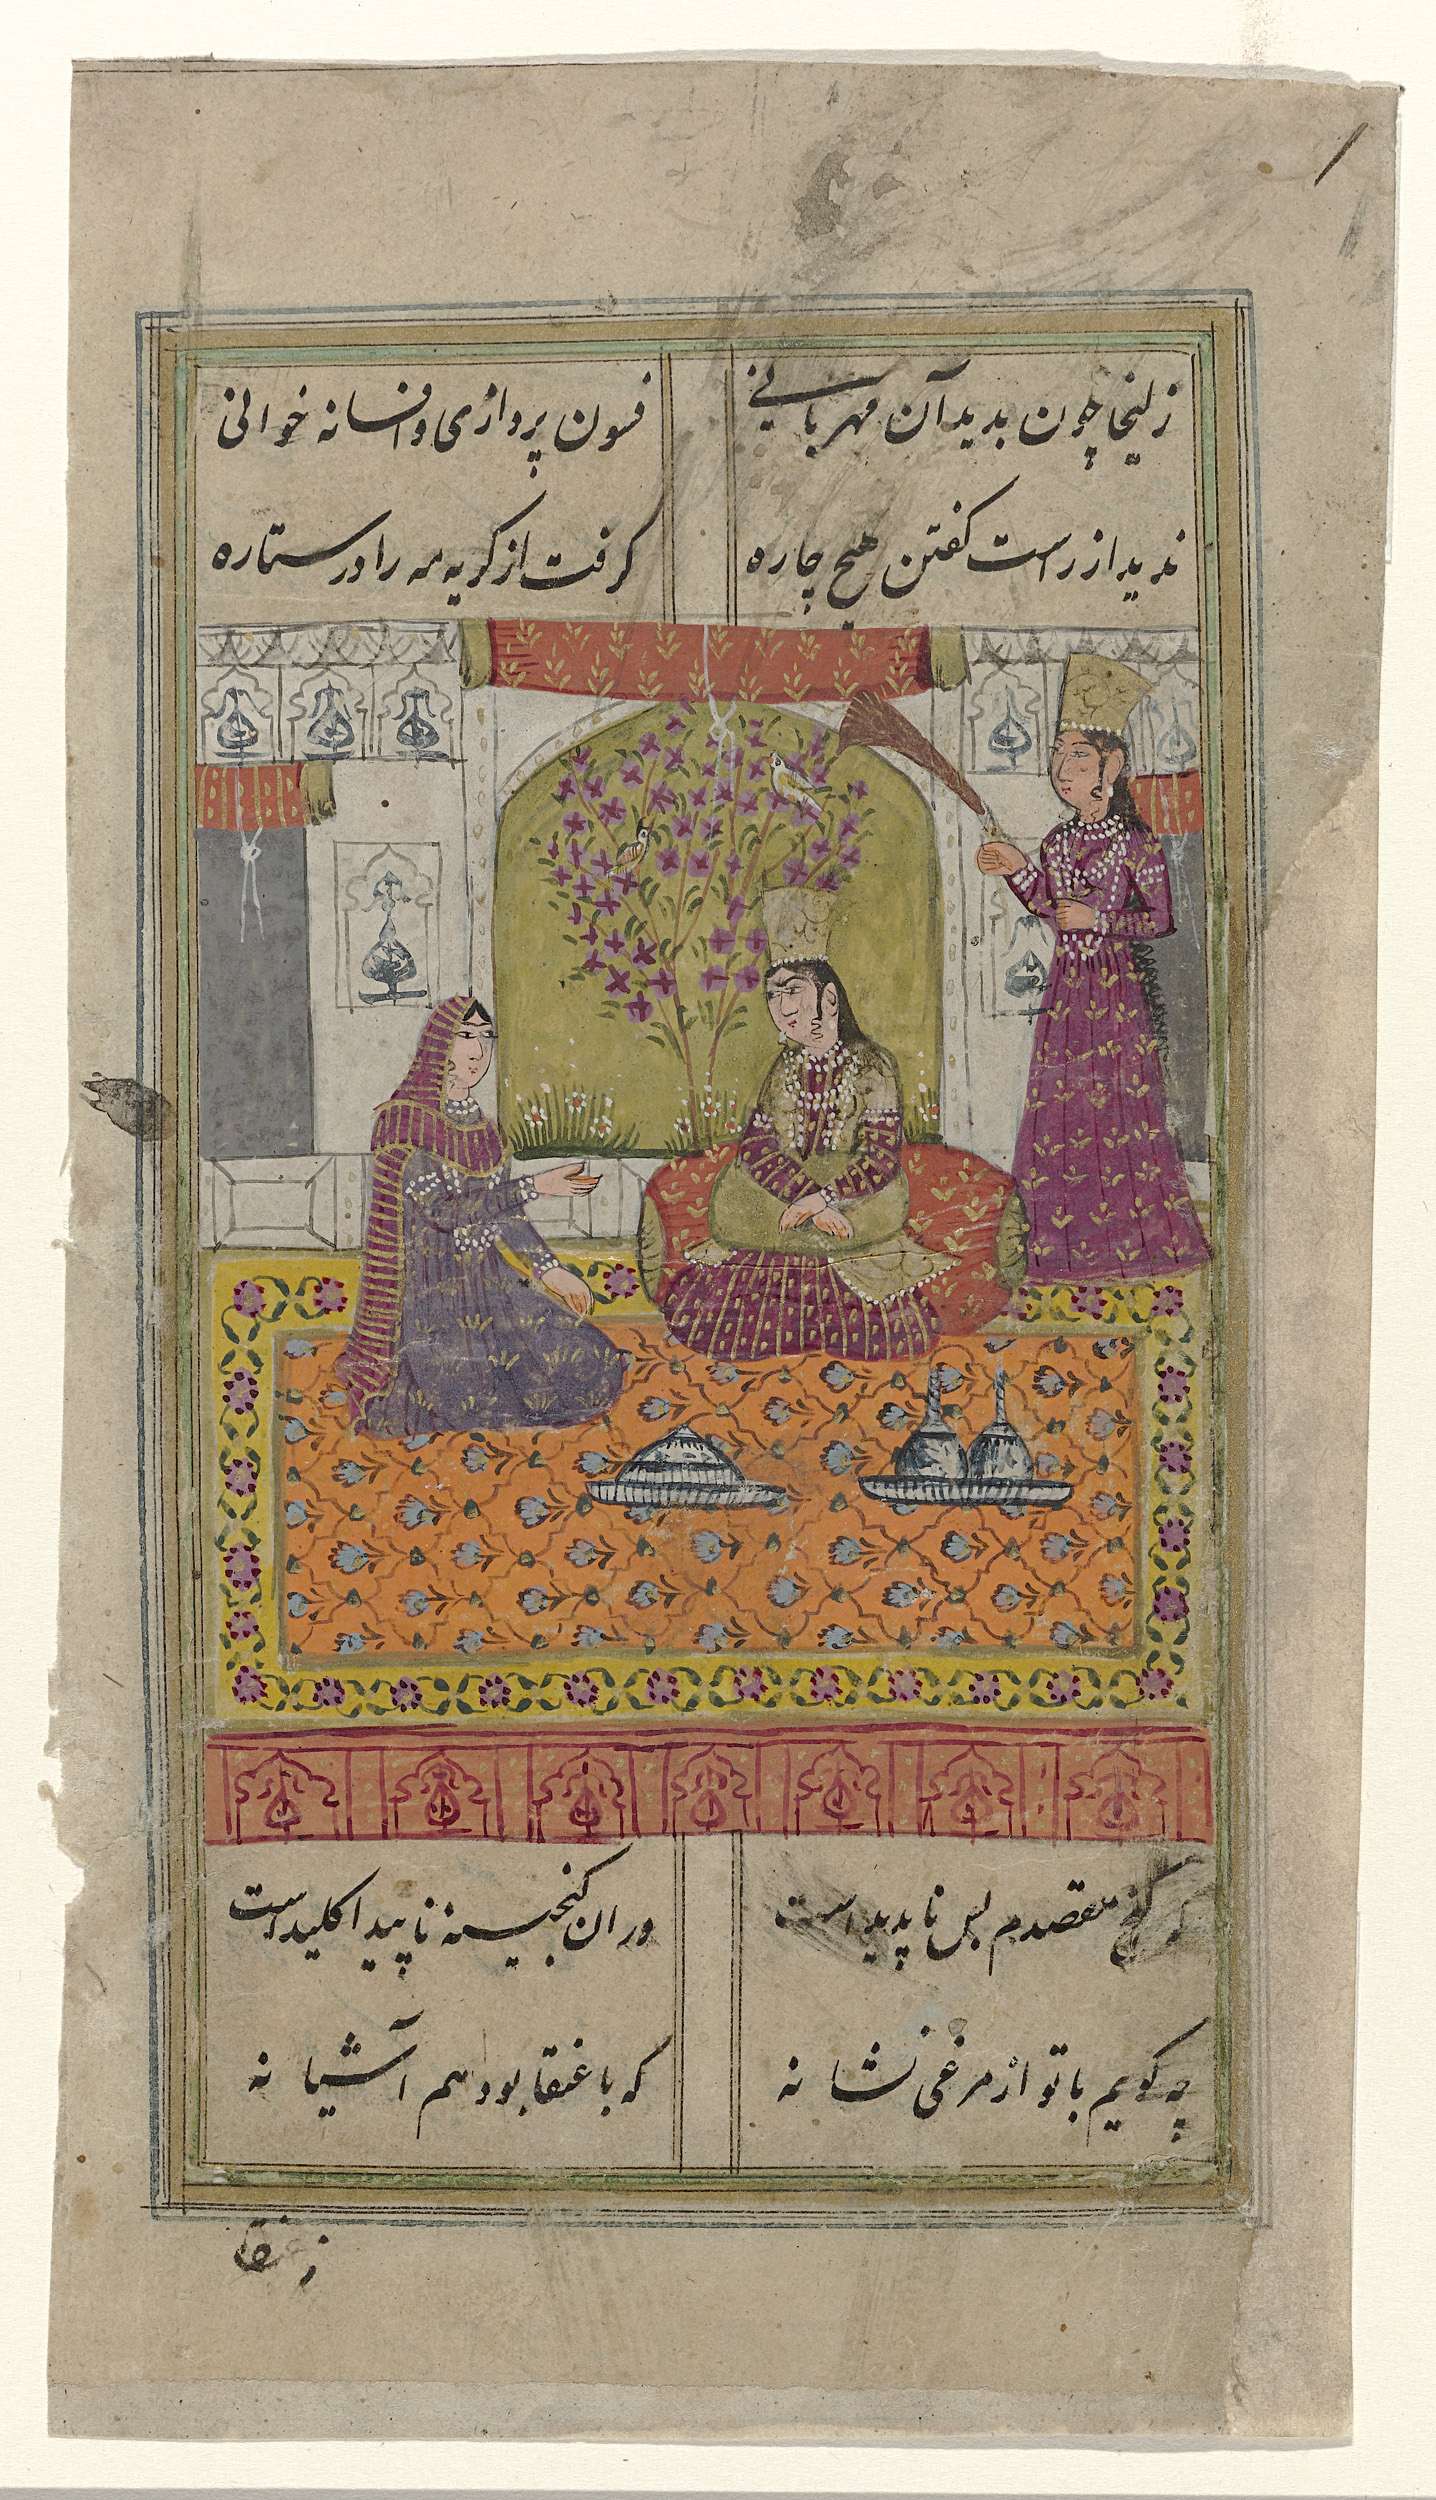 زلیخا چون بدید آن مهربانی فسون پردازی و افسانه خوانی
ندید از راست کفتن هیچ چاره کرفت از کریه مه را در ستاره
که کنج مقصدم بس ناپدید است در ان کنجینه ناپیدا کلید است
چه کویم با تو از مرغی نشانه که با عنقا بود هم آشیانه
ز عنقا